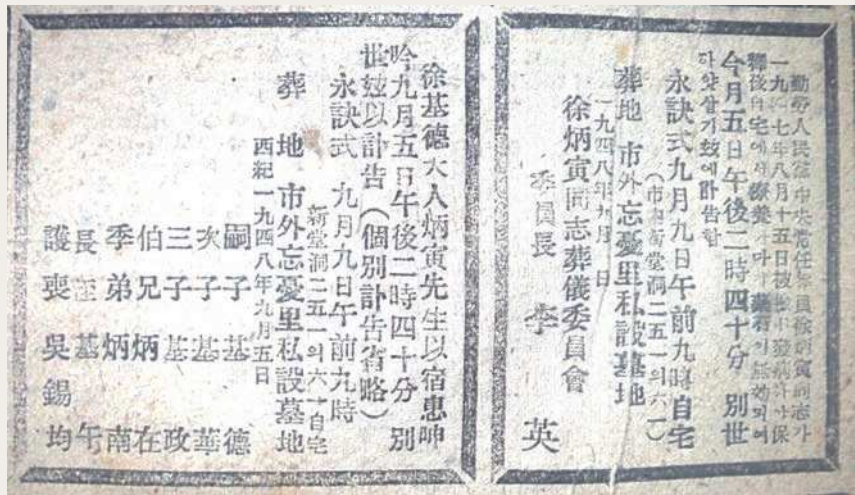 勤勞人民黨中央常任委員徐炳寅同志가
一九四七年八月十五日被檢中發病하야保
釋後自宅에서療養
今月五日午後二時四十分 別世
하얏삽기玆에訃告함
永訣式九月九日午前九時自宅
(市內新堂洞二五一의六一)
葬地 市外忘憂里私設墓地
一九四八年九月 日
徐炳寅同志葬儀委員會
委員長 李 英
徐基德大人炳寅先生以宿患呻
吟九月五日午後二時四十分別
世玆以訃告(個別訃告省略)
永訣式 九月九日午前九時
新堂洞二五一의六一自宅
葬 地 市外忘憂里私設墓地
西紀一九四八年九月五日
嗣子 基 德
次子 基 華
三子 基 政
伯兄 炳 在
季弟 炳 南
長 基 午
護喪 吳錫均